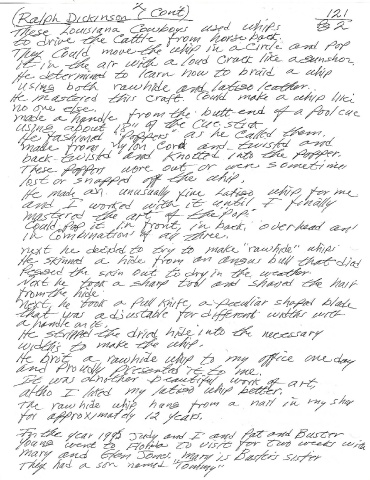 (Ralph Dickinson 4 Cont)
121
These Louisiana Cowboys used whips
to drive the Cattle from horse back.
They Could move the whip in a Circle and Pop
it in the air with a loud Crack like a gunshot.
He determined to learn how to braid a whip
using both rawhide and latigo leather.
He mastered this craft. Could make a whip like
no one else.
made a handle from the butt end of a Pool cue
using about 18" of the Cue stick
He fashioned "Poppers" as he called them.
made from Nylon Cord and twisted and
back-twisted and Knotted into the Popper.
These Poppers wore out or were sometimes
lost or snapped off the whip.
He made an unusually fine Latigo whip for me
and I worked with it until I finally
mastered the art of the Pop.
Could Pop it in front, in back, overhead and
in Combinations of all three.
next he decided to try to make "rawhide" whip.
He skinned a hide from an angus bull that died
Pegged the skin out to dry in the weather.
Next he took a sharp tool and shaved the hair
from the hide
Next, he took a Pull Knife, a Peculiar shaped blade
that was adjustable for different widths with
a handle on it.
He stripped the dried hide into the necessary
widths to make the whip.
He brot a rawhide whip to my office one day
and Proudly Presented it to me.
It was another beautiful work of art,
altho I liked my latigo whip better.
The rawhide whip hung from a nail in my shop
for approximately 12 years.
For the year 1995 Judy and I and Pat and Buster
Young went to to visit for two weeks with
mary and Glen Jones. mary is Buster's sister
They had a son named "Tommy"